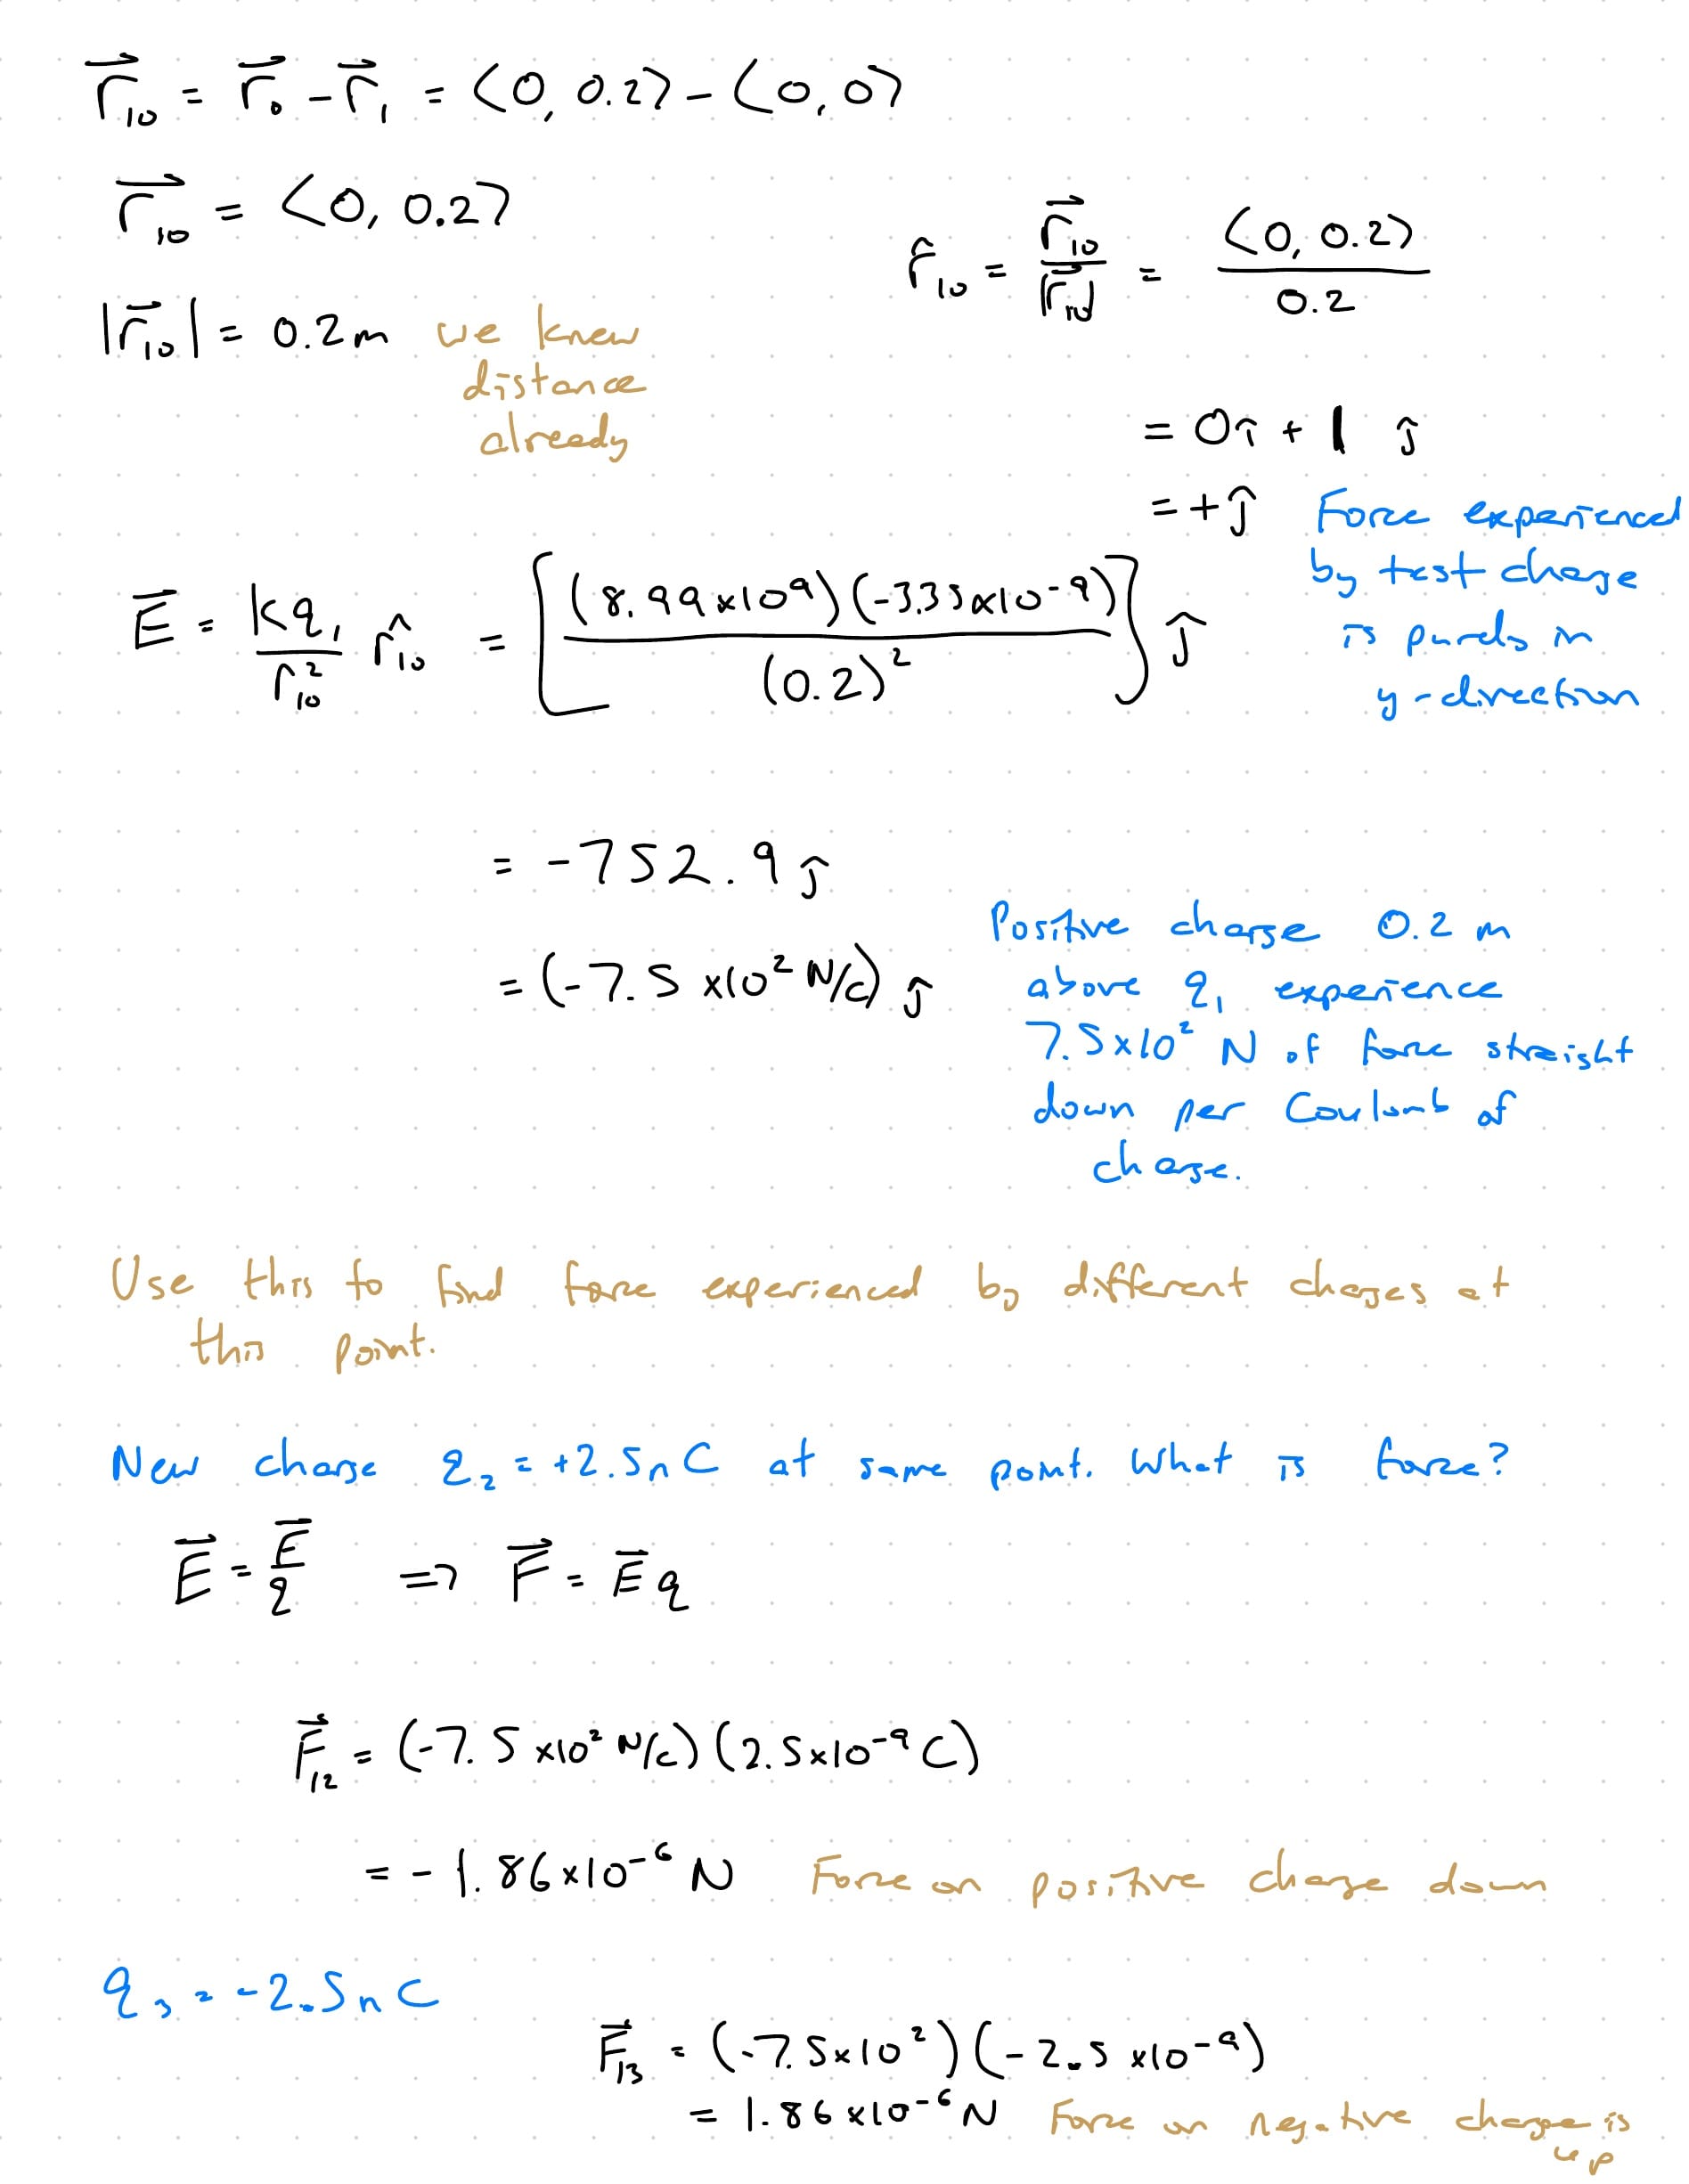 r⃗₁₀ = r⃗₀ - r⃗₁ = <0, 0.2> - <0, 0>
r⃗₁₀ = <0, 0.2>
|r⃗₁₀| = 0.2 m we knew
distance
already
r̂₁₀ = r⃗₁₀/|r⃗₁₀| = <0, 0.2>/0.2
= 0î + 1 ĵ
= +ĵ Force experienced
by test charge
is purely in
y-direction
E⃗ = kq₁/r₁₀² r̂₁₀ = [(8.99x10⁹)(-3.35x10⁻⁹)/(0.2)²] ĵ
= -752.9 ĵ
= (-7.5 x10² N/C) ĵ
Positive charge 0.2 m
above q₁ experience
7.5x10² N of force straight
down per Coulomb of
charge.
Use this to find force experienced by different charges at
this point.
New charge q₂ = +2.5nC at same point. What is force?
E⃗ = E⃗/q => F⃗ = E⃗q
F⃗₁₂ = (-7.5 x10² N/C)(2.5x10⁻⁹ C)
= -1.86x10⁻⁶ N Force on positive charge down
q₃ = -2.5nC
F⃗₁₃ = (-7.5x10²)(-2.5 x10⁻⁹)
= 1.86x10⁻⁶ N Force on negative charge is
up